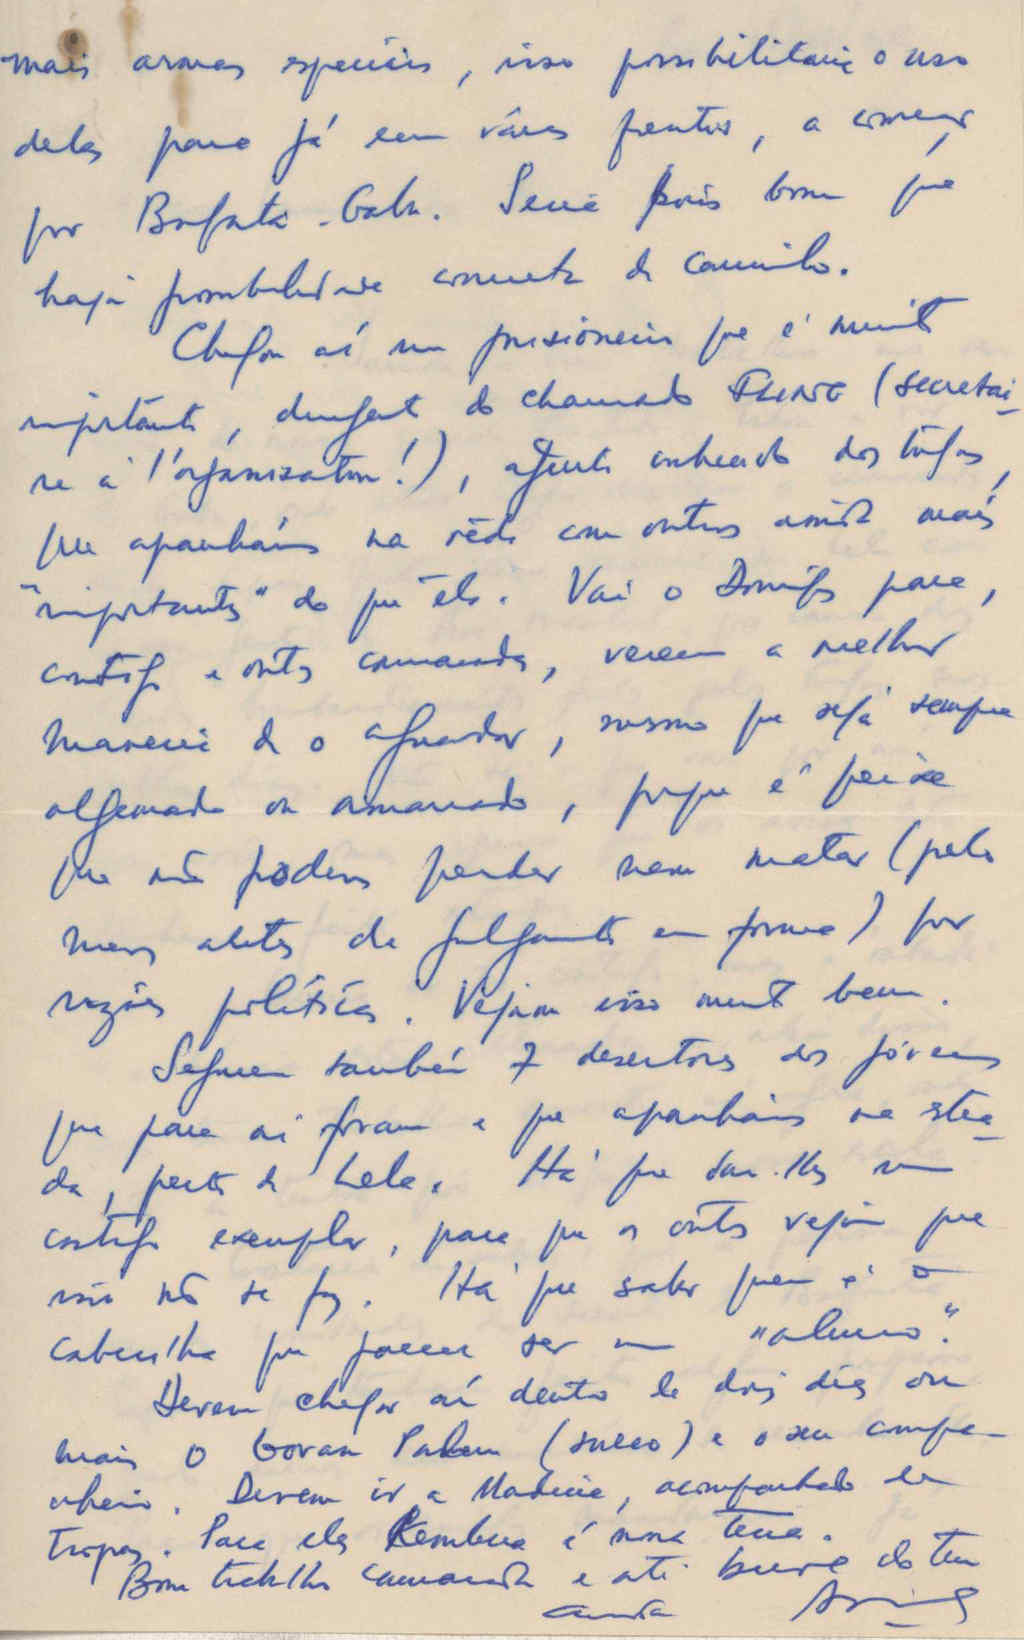 mais armas especiais, isso possibilitaria o uso
delas para já em várias frentes, a começar
por Bafatá-Gabu. Seria pois bom que
haja possibilidade concreta de caminho.
Chegou aí um prisioneiro que é muito
importante, dirigente do chamado FLING (secretai-
re à l'organisation!), agente conhecido dos tugas,
que apanhámos na rêde com outros ainda mais
"importantes" do que ele. Vai o Domingos para,
contigo e outros camaradas, verem a melhor
maneira de o aguardar, mesmo que seja sempre
algemado ou amarrado, porque é peixe
que não podemos perder nem matar (pelo
menos antes de julgamento em forma) por
razões políticas. Vejam isso muito bem.
Seguem também 7 desertores dos jóvens
que para aí foram e que apanhámos na stra-
da, perto de Lela. Há que dar-lhes um
castigo exemplar, para que os outros vejam que
isso não se faz. Há que saber quem é o
cabecilha que parece ser um "aluno".
Devem chegar aí dentro de dois dias ou
mais o Goran Palm (sueco) e o seu compa-
nheiro. Devem ir a Madina, acompanhado de
tropas. Para eles Kembera é nova terra.
Bom trabalho camarada e até breve do teu
camarada